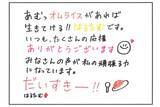 あむっオムライスがあれば
生きてける!! はるたむです。
いつも、たくさんの応援
ありがとうございます
みなさんの声が私の頑張る力
になっています。
だいすきー!!
はるたむ